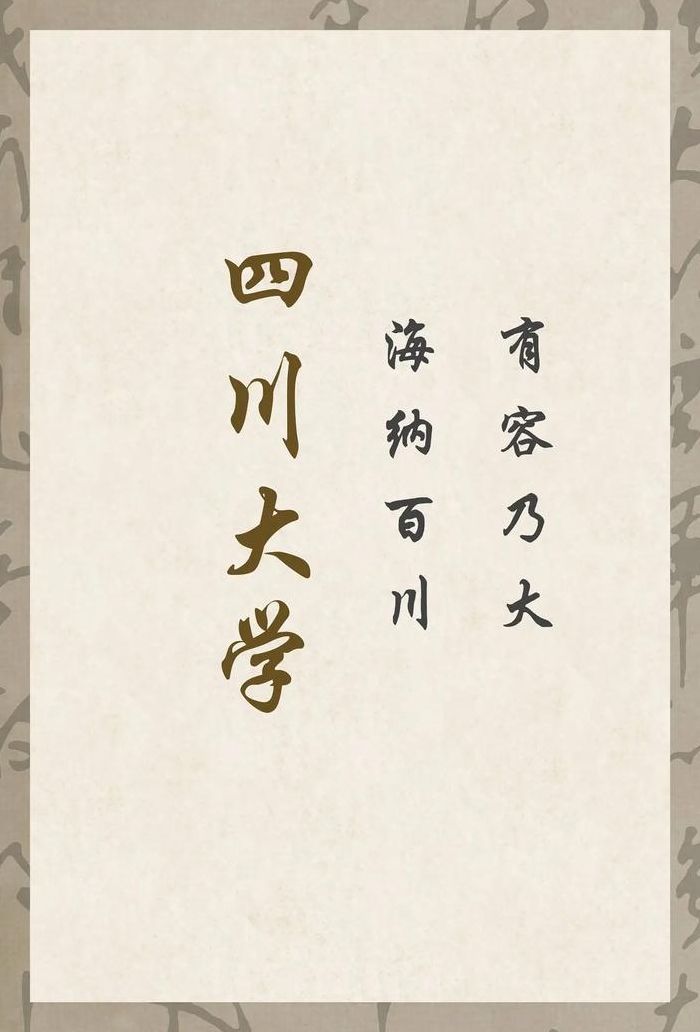 四川大学
海纳百川
有容乃大